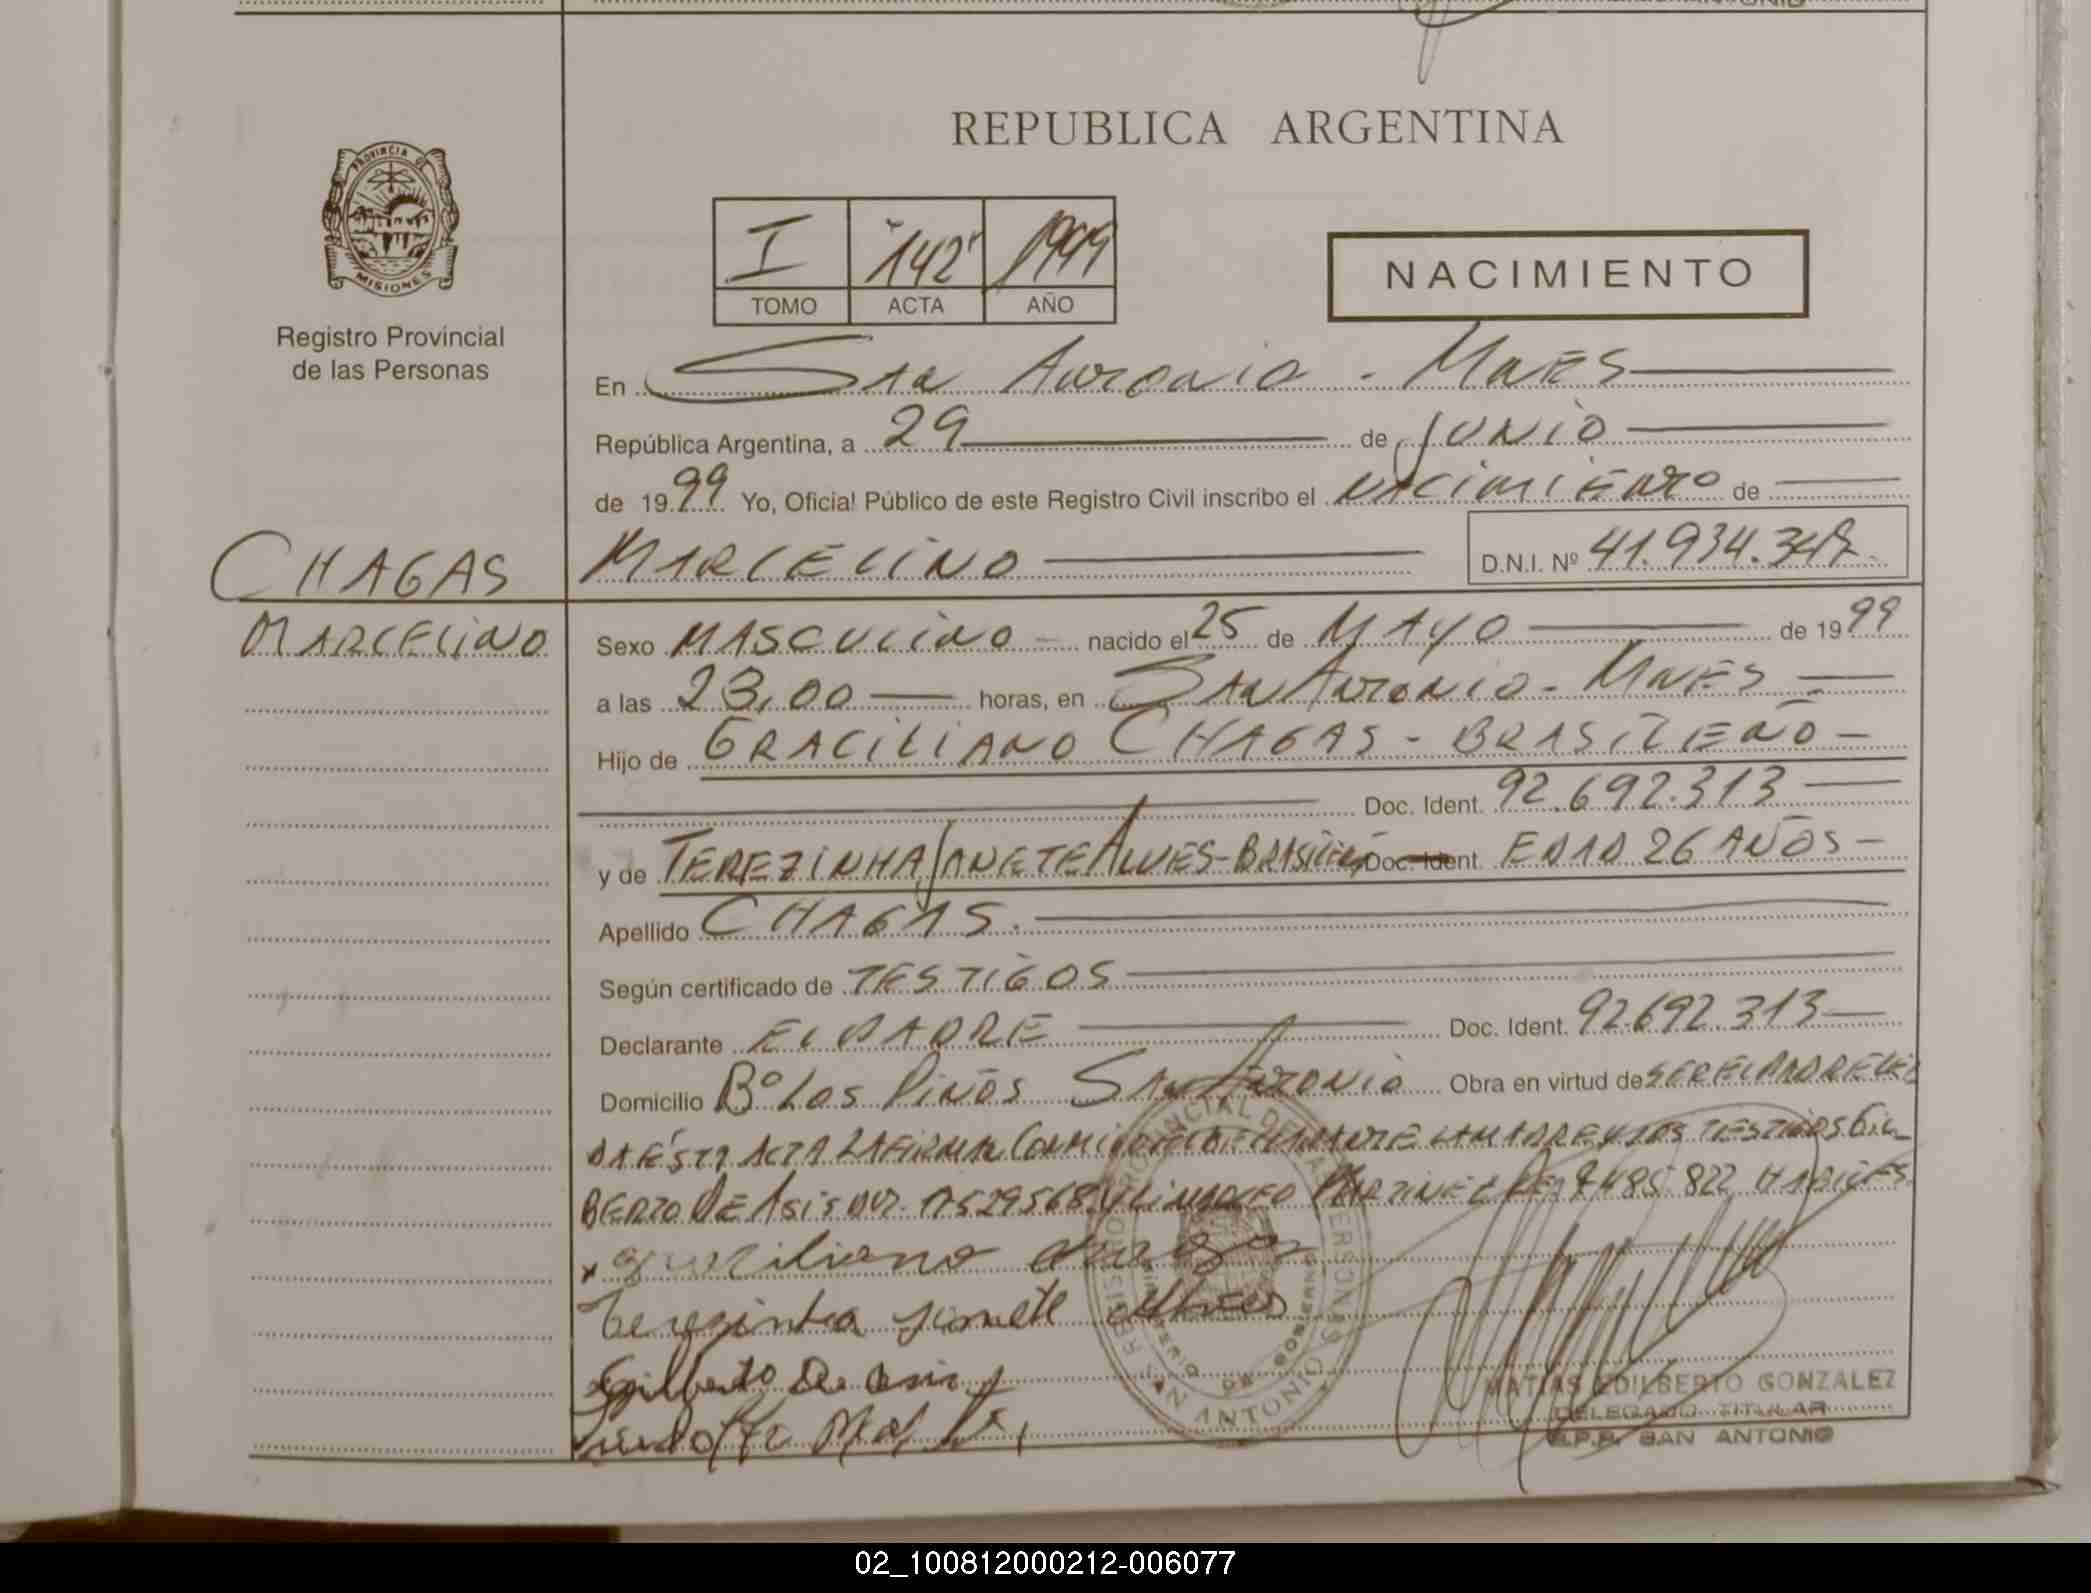 REPUBLICA ARGENTINA
PROVINCIA DE
MISIONES
Registro Provincial
de las Personas
I 142 1999
TOMO ACTA AÑO
NACIMIENTO
En San Antonio - Mnes
República Argentina, a 29 de Junio
de 1999 Yo, Oficial Público de este Registro Civil inscribo el nacimiento de
CHAGAS
MARCELINO
MARCELINO
D.N.I. Nº 41.934.347
Sexo MASCULINO nacido el 25 de MAYO de 1999
a las 23,00 horas, en San Antonio - Mnes
Hijo de GRACILIANO CHAGAS - BRASILEÑO
Doc. Ident. 92.692.313
y de TEREZINHA JANETE ALVES - Doc. Ident. EDAD 26 AÑOS
Apellido CHAGAS.
Según certificado de TESTIGOS
Declarante EL PADRE Doc. Ident. 92.692.313
Domicilio Bº Los Pinos San Antonio Obra en virtud de SER EL PADRE LEI
DA ÉSTA ACTA LA FIRMAN CONMIGO EL DECLARANTE LA MADRE Y LOS TESTIGOS GIL
BERTO DE ASIS 17529568 Y 7.485.822 HABILES.
graciliano chagas
Terezinha janete Alves
Gilberto De asis
REGISTRO PROVINCIAL DE LAS PERSONAS
MINISTERIO DE GOBIERNO
SAN ANTONIO
MATIAS EDILBERTO GONZALEZ
DELEGADO TITULAR
R.P.P. SAN ANTONIO
02_100812000212-006077